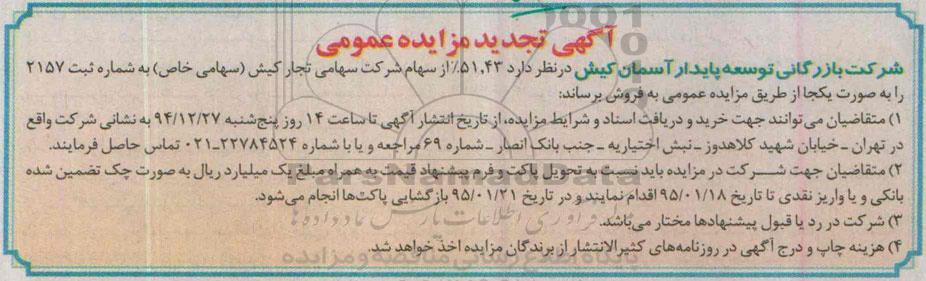 آگهی تجدید مزایده عمومی
شرکت بازرگانی توسعه پایدار آسمان کیش در نظر دارد ۵۱,۴۳٪ از سهام شرکت سهامی تجار کیش (سهامی خاص) به شماره ثبت ۲۱۵۷
را به صورت یکجا از طریق مزایده عمومی به فروش برساند:
۱) متقاضیان می‌توانند جهت خرید و دریافت اسناد و شرایط مزایده، از تاریخ انتشار آگهی تا ساعت ۱۴ روز پنج‌شنبه ۹۴/۱۲/۲۷ به نشانی شرکت واقع
در تهران ـ خیابان شهید کلاهدوز ـ نبش اختیاریه ـ جنب بانک انصار ـ شماره ۶۹ مراجعه و یا با شماره ۲۲۷۸۴۵۲۴-۰۲۱ تماس حاصل فرمایند.
۲) متقاضیان جهت شــرکت در مزایده باید نسبت به تحویل پاکت و فرم پیشنهاد قیمت به همراه مبلغ یک میلیارد ریال به صورت چک تضمین شده
بانکی و یا واریز نقدی تا تاریخ ۹۵/۰۱/۱۸ اقدام نمایند و در تاریخ ۹۵/۰۱/۲۱ بازگشایی پاکت‌ها انجام می‌شود.
۳) شرکت در رد یا قبول پیشنهادها مختار می‌باشد.
۴) هزینه چاپ و درج آگهی در روزنامه‌های کثیرالانتشار از برندگان مزایده اخذ خواهد شد.
ParsNamadData
پایگاه اطلاع رسانی مناقصه و مزایده